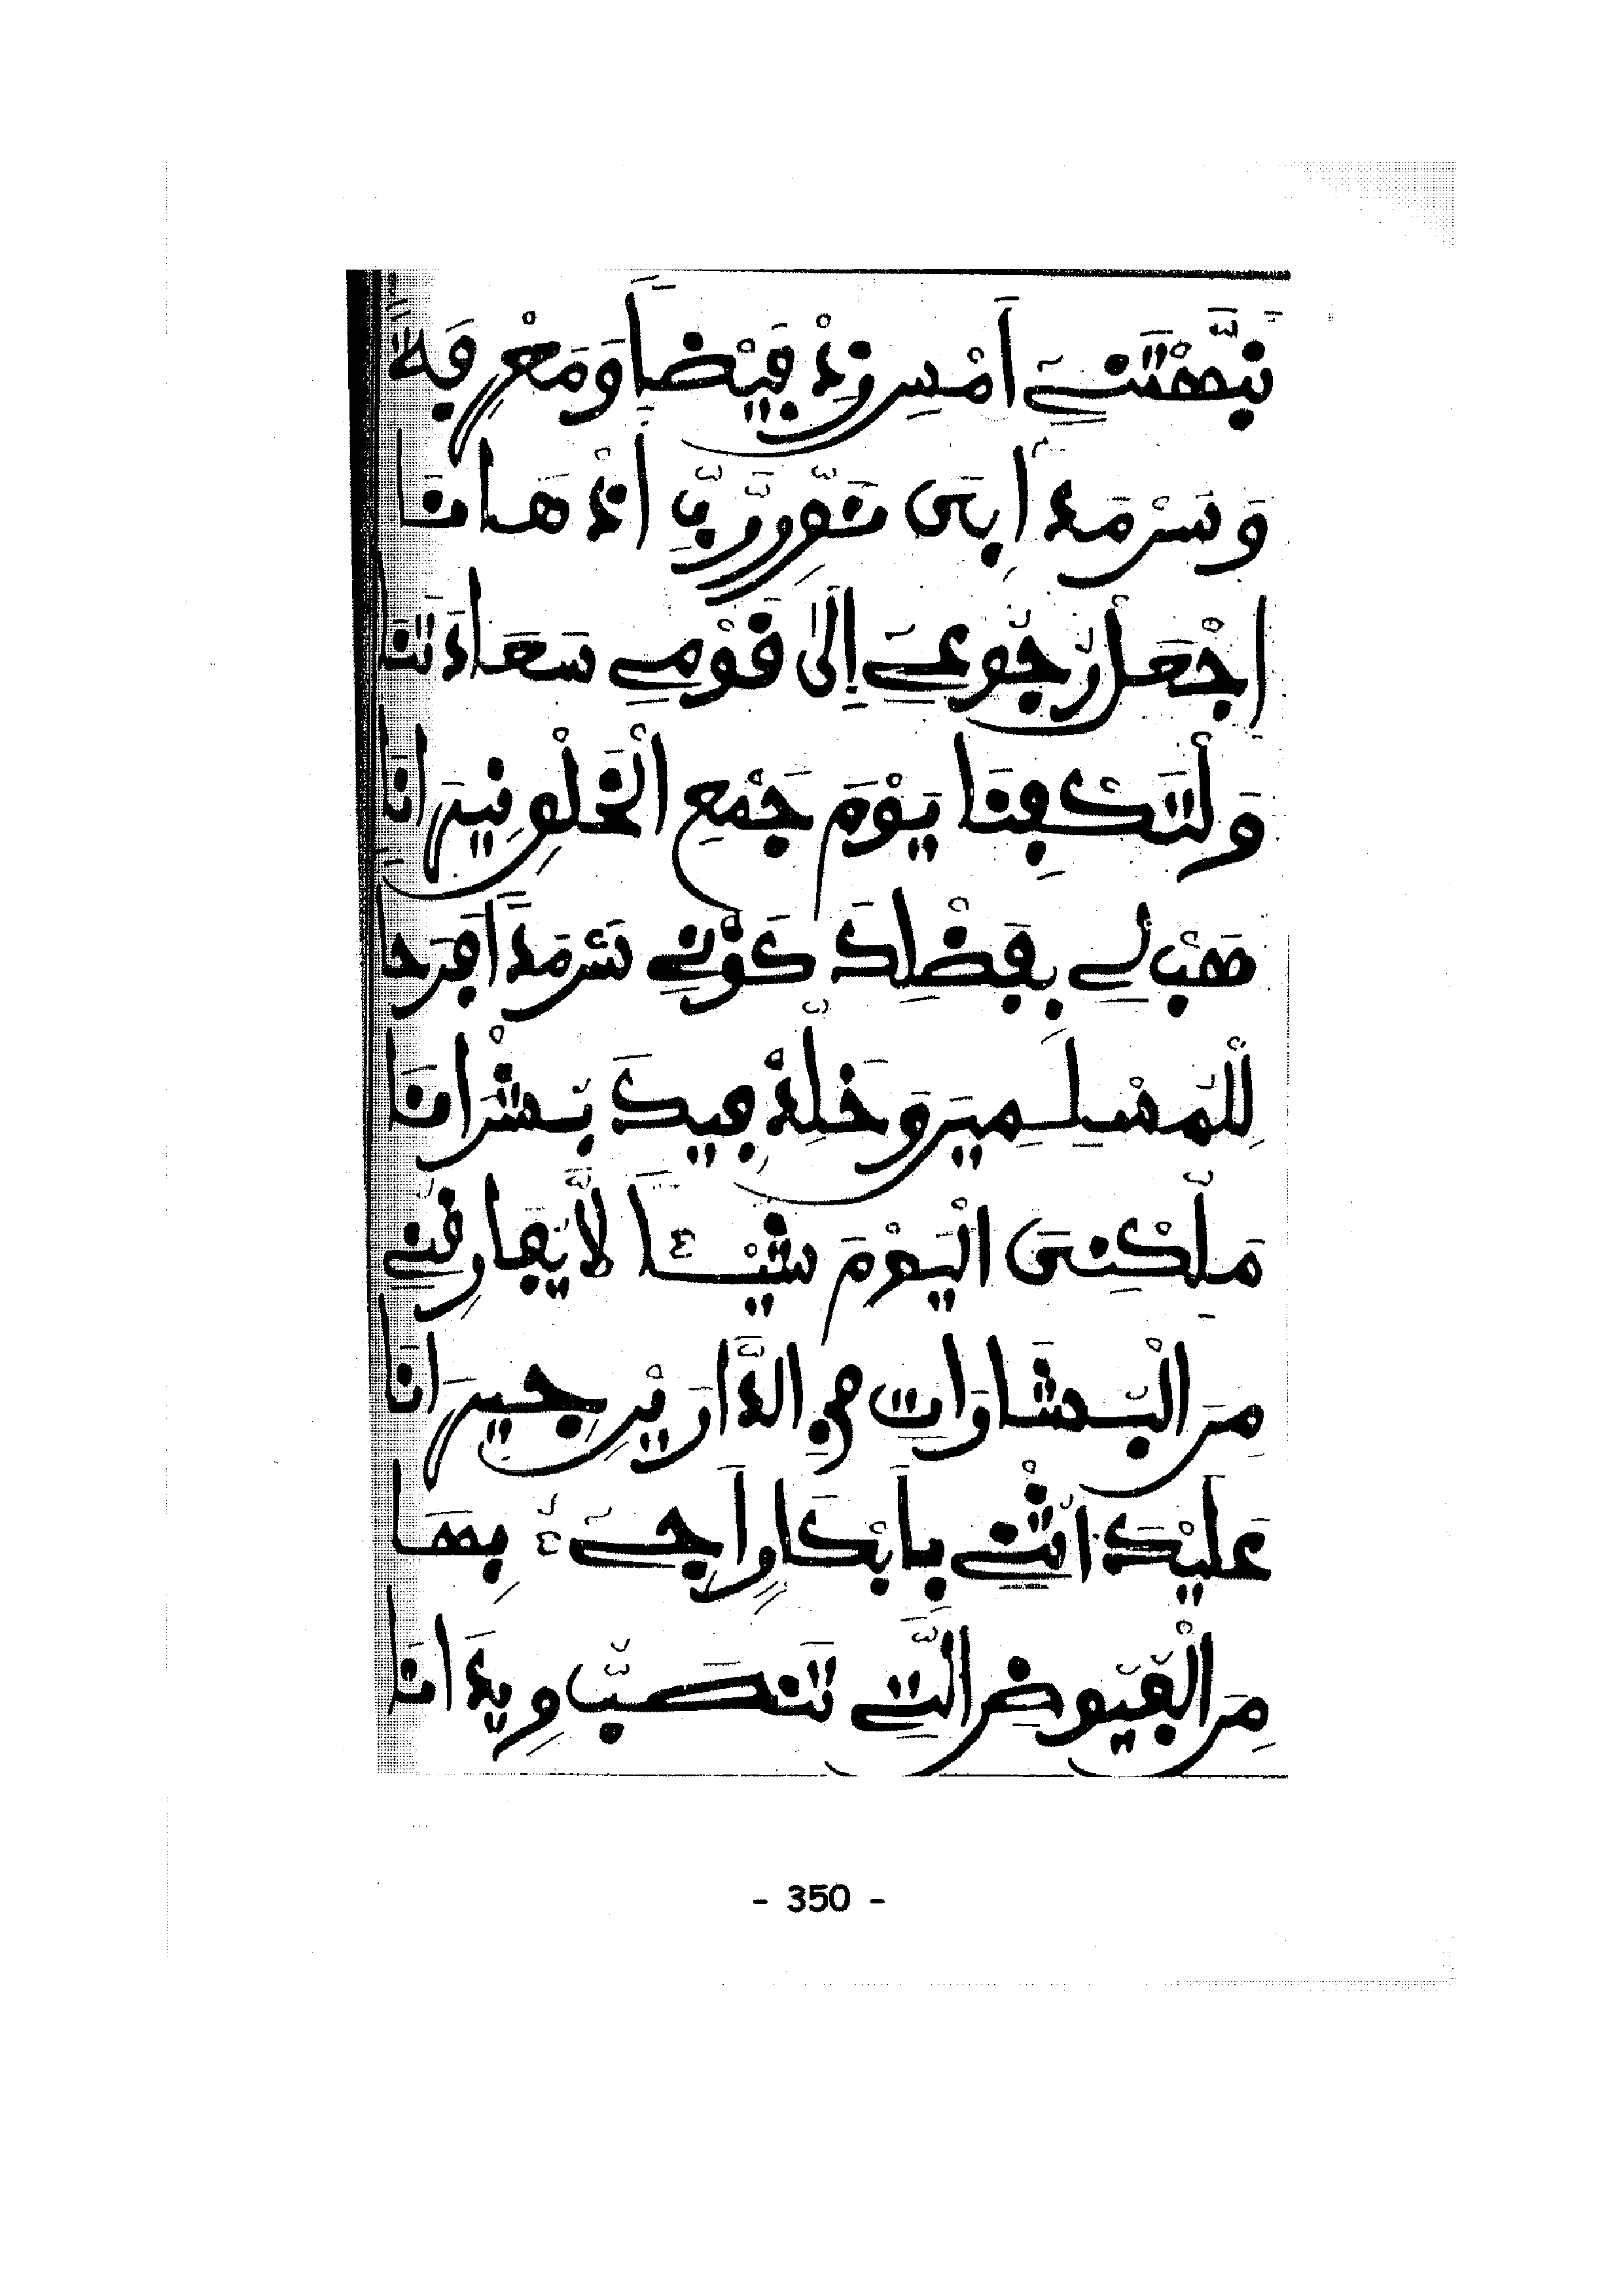 نَبَّهْتَنِي أَمْسِ زِدْ فَيْضًا وَمَعْرِفَةً
وَسَرْمَدِ ابْنِى نَوِّرَ رَبِّ أَذْهَانَا
اجْعَلْ رُجُوعِي إِلَى قَوْمِي سَعَادَتَنَا
وَلْتَكْفِنَا يَوْمَ جَمْعِ الْخَلْقِ نِيرَانَا
هَبْ لِي بِفَضْلِكَ كَوْنِي سَرْمَدًا فَرَحًا
لِلْمُسْلِمِينَ وَخَلِّدْ فِيكَ بُشْرَانَا
مَلِّكْنِىَ الْيَوْمَ شَيْئًا لَّا يُفَارِقُنِي
مِنَ الْبُشَارَاتِ فِي الدَّارَيْنِ جِيرَانَا
عَلَيْكَ أُثْنِي بِأَبْكَارٍ أَجِيءُ بِهَا
مِنَ الْفُيُوضِ الَّتِي تَنْصَبُّ وِيدَانَا
- 350 -